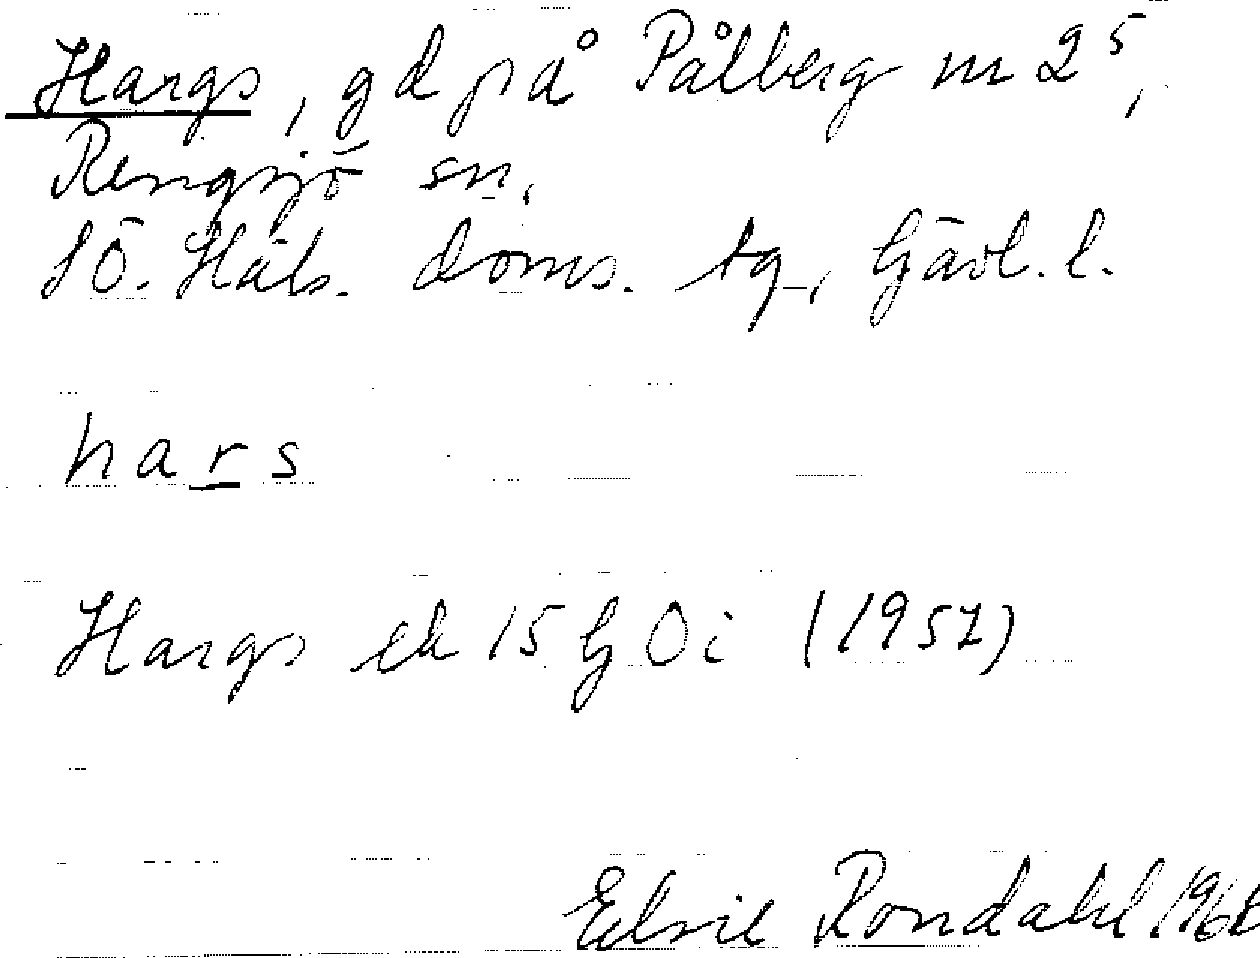 Hargs, gd på Pålberg nr 2⁵,
Rengsjö sn,
SÖ. Häls. doms. tg, Gävl. l.
hars
Hargs ek 15 G Öi (1957)
Elsie Rondahl 196